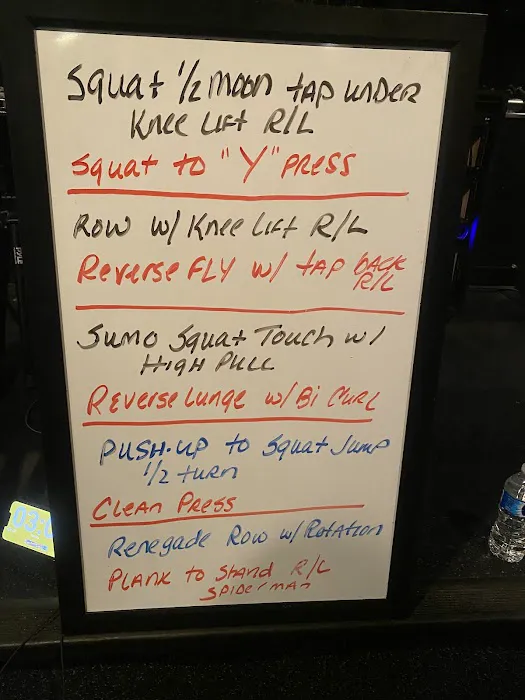 Squat 1/2 moon tap under
Knee Lift R/L
Squat to "Y" press
Row w/ Knee Lift R/L
Reverse Fly w/ tap back
R/L
Sumo Squat Touch w/
High Pull
Reverse Lunge w/ Bi Curl
Push-up to Squat Jump
1/2 turn
Clean Press
Renegade Row w/ Rotation
Plank to Stand R/L
Spiderman